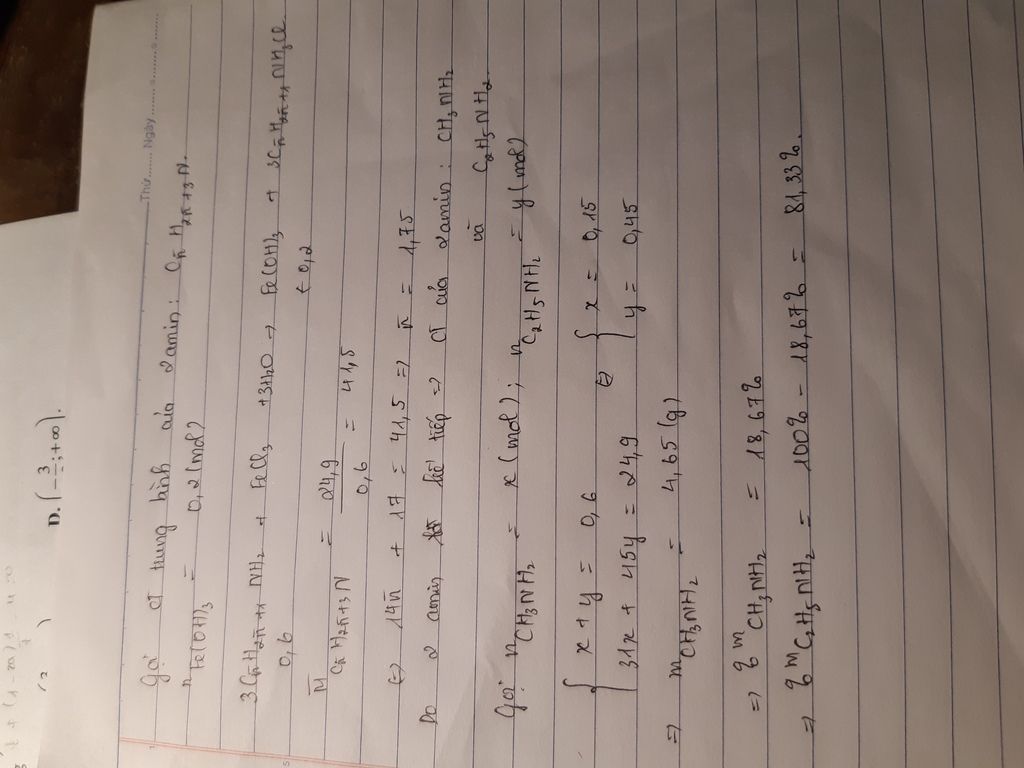 D. (-3/-;+∞).
Thứ....... Ngày.........
Gọi CT trung bình của 2 amin: Cn̄H2n̄+3N.
nFe(OH)3 = 0,2 (mol)
3Cn̄H2n̄+1NH2 + FeCl3 + 3H2O → Fe(OH)3 + 3Cn̄H2n̄+1NH3Cl
0,6 ← 0,2
M̄Cn̄H2n̄+3N = 24,9/0,6 = 41,5
(=) 14n̄ + 17 = 41,5 => n̄ = 1,75
Do 2 amin liên tiếp => CT của 2 amin: CH3NH2
và C2H5NH2
Gọi nCH3NH2 = x (mol); nC2H5NH2 = y (mol)
{ x + y = 0,6 (=) { x = 0,15
{ 31x + 45y = 24,9 { y = 0,45
=> mCH3NH2 = 4,65 (g)
=> %mCH3NH2 = 18,67%
=> %mC2H5NH2 = 100% - 18,67% = 81,33%.